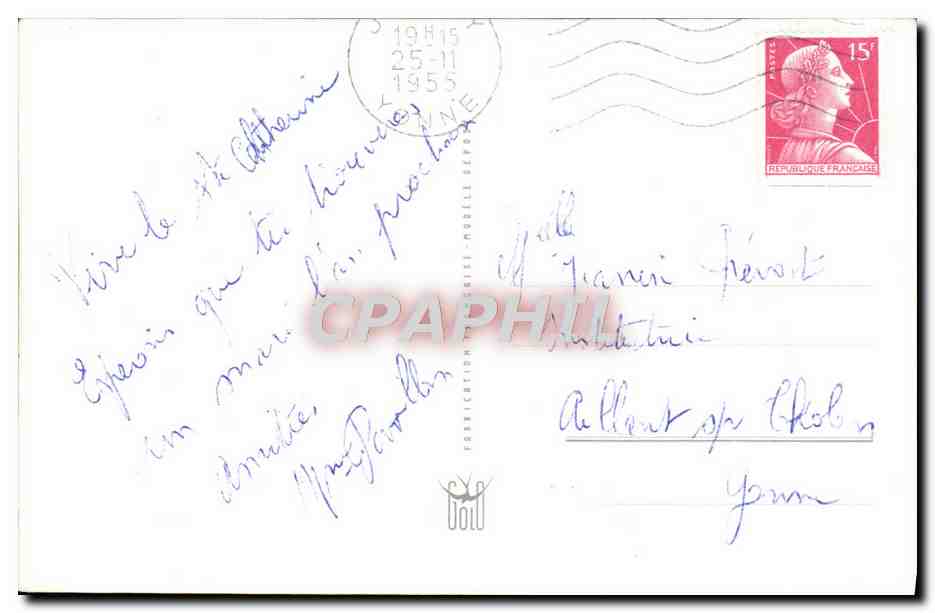 19H15
25-11
1955
YONNE
POSTES
15F
REPUBLIQUE FRANÇAISE
Vive la Ste Catherine
Espérons que tu trouveras
un mari l'an prochain
Amitiés.
Mme
FABRICATION FRANÇAISE - MODÈLE DÉPOSÉ
Melle
Prévost
Institutrice
Aillant sr Tholon
Yonne
CPAPHIL